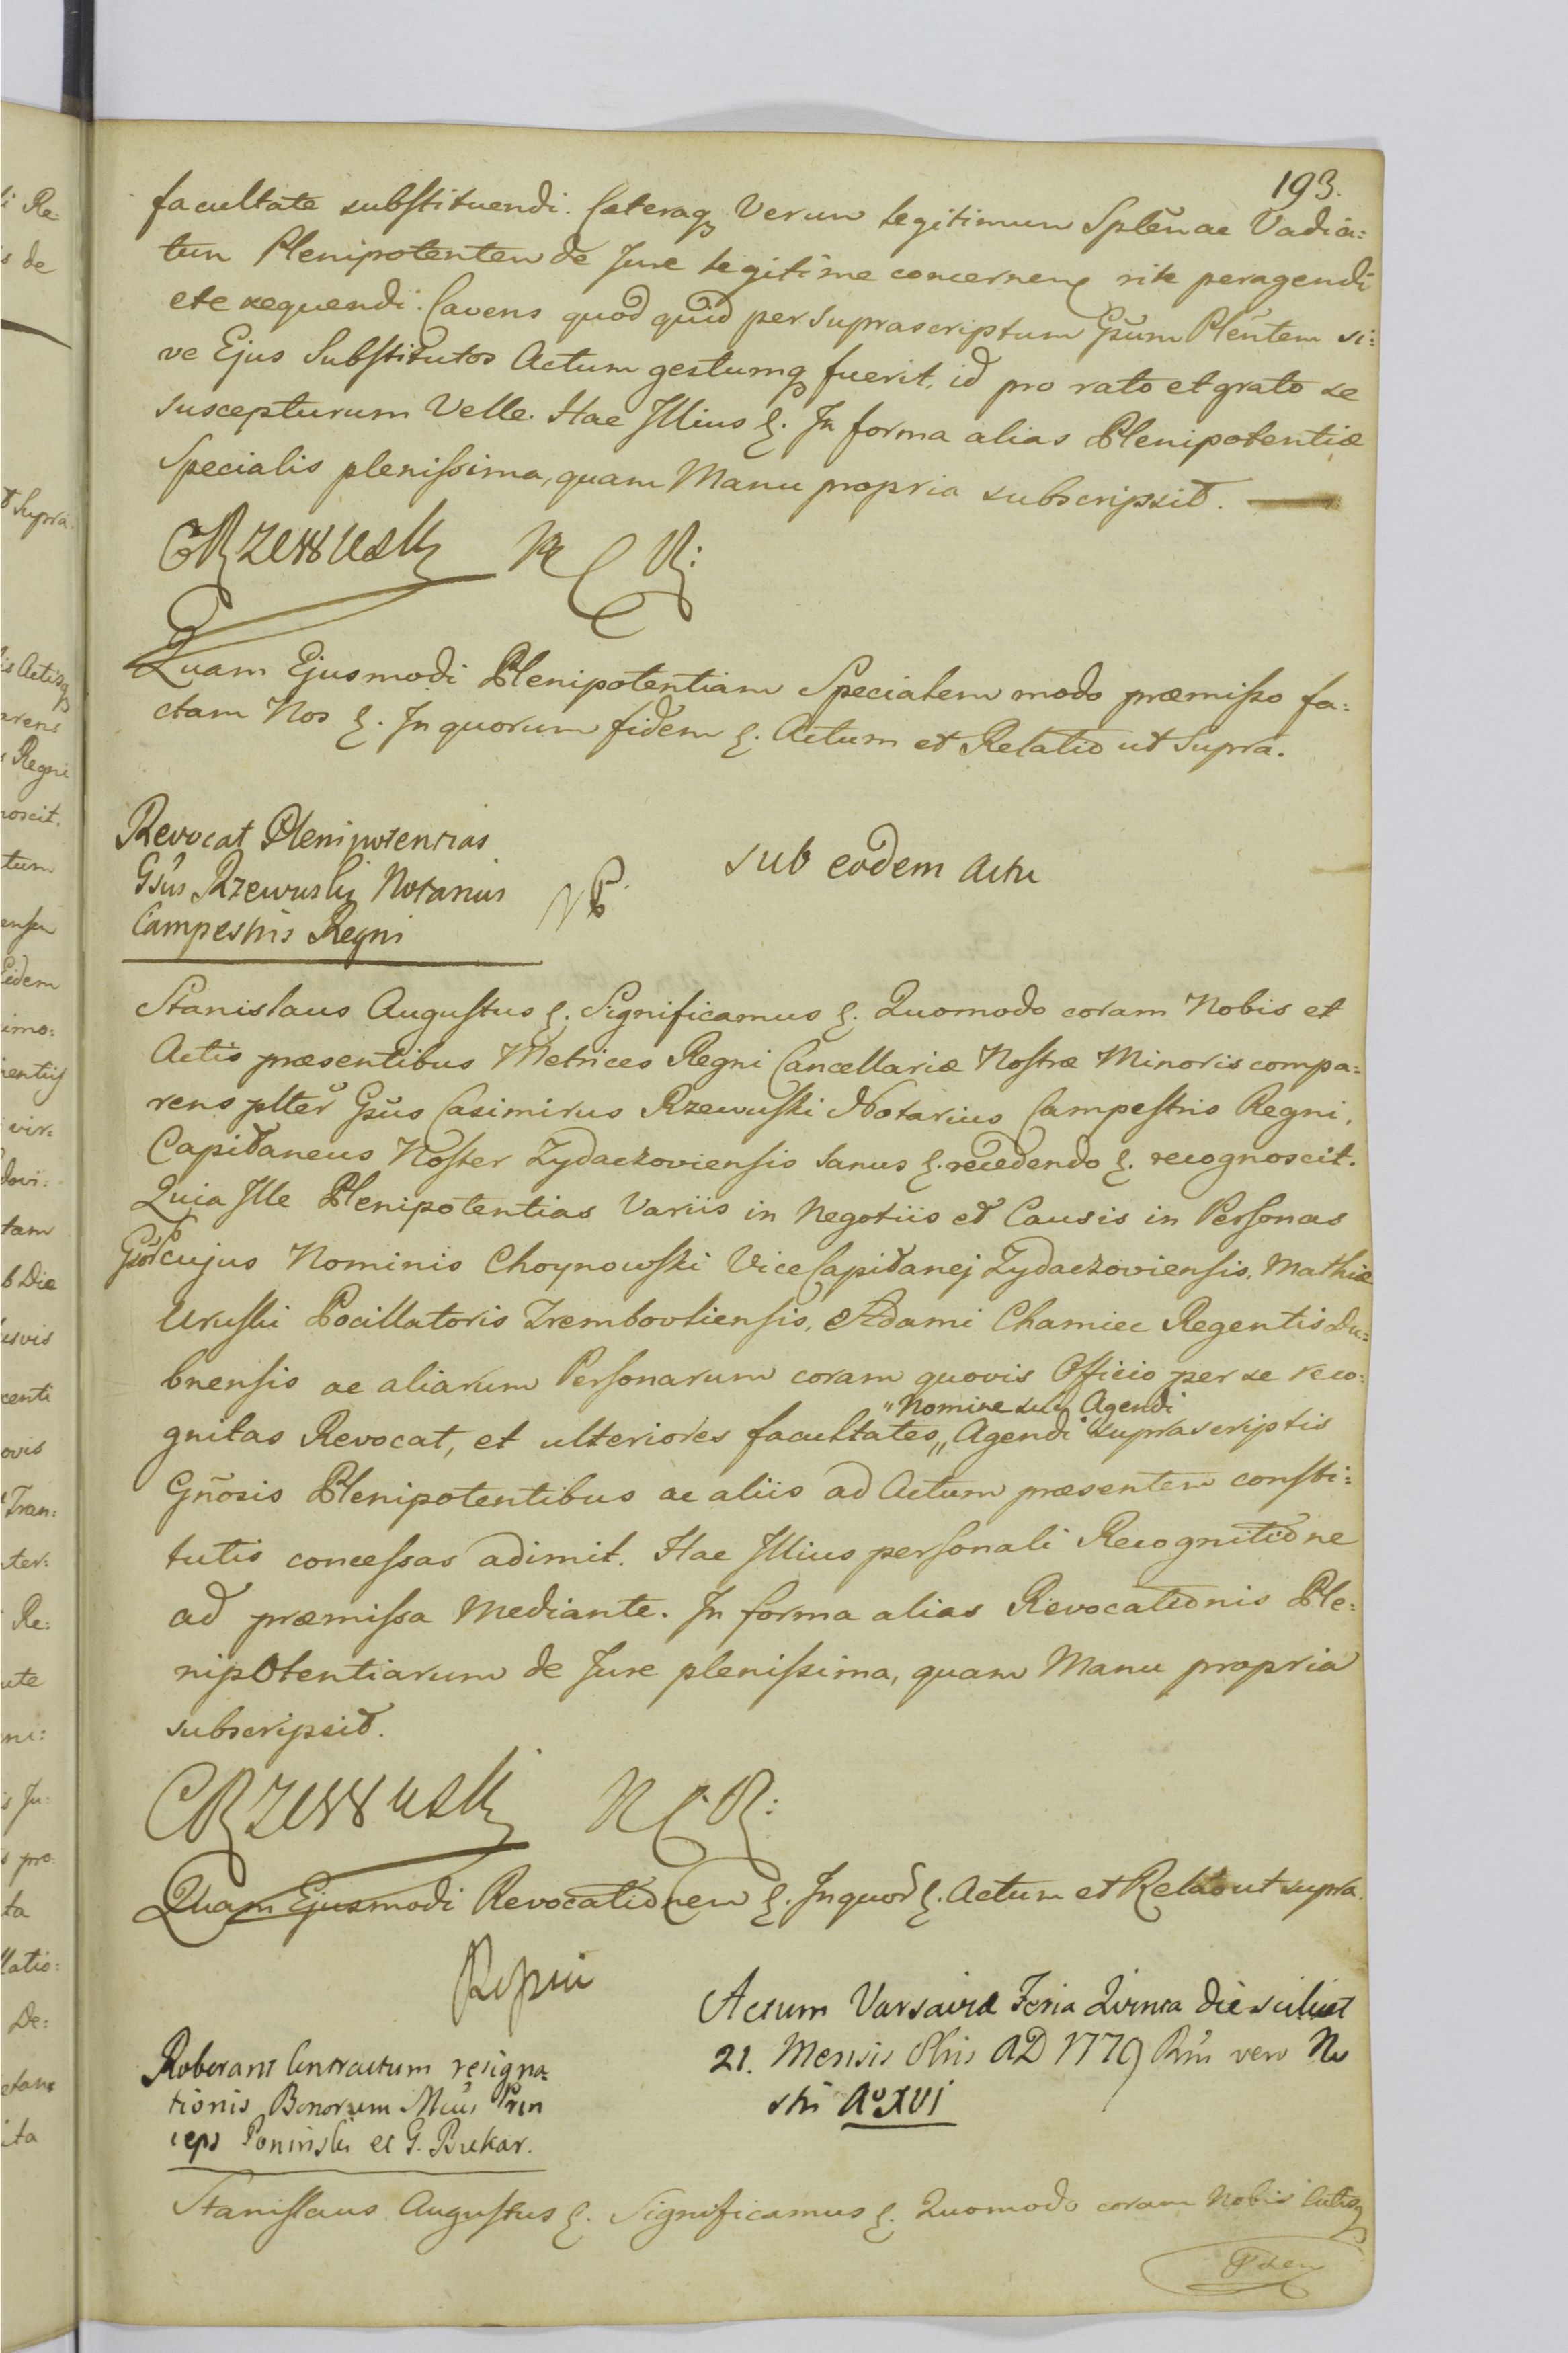 193.
facultate substituendi. Cæteraq Verum legitimum Splēnae Vadia:
tum Plenipotentem de Jure legitime concernen rite peragendi
et exequendi. Cavens quod quid per suprascriptum Gsūm Plēntem si:
ve Ejus Substitutos Actum gestumq fuerit, id pro rato et grato se
suscepturum Velle. Hac Illius &. In forma alias Plenipotentiæ
Specialis plenissima, quam Manu propria subscripsit.
CRzewuski N C R:
Quam Ejusmodi Plenipotentiam Specialem modo præmisso fa:
ctam Nos &. In quorum fidem &. Actum et Relatio ut Supra.
Revocat Plenipotentias
Gsūs Rzewuski Notarius
Campestris Regni
sub eodem Actu
Stanislaus Augustus &. Significamus &. Quomodo coram Nobis et
Actis præsentibus Metrices Regni Cancellariæ Nostræ Minoris compa:
rens plter Gsūs Casimirus Rzewuski Notarius Campestris Regni,
Capitaneus Noster Zydaczoviensis sanus &. recedendo &. recognoscit.
Quia Ille Plenipotentias Variis in Negotiis et Causis in Personas
Gsor cujus Nominis Choynowski Vice Capitanej Zydaczoviensis, Mathiæ
Uruski Pocillatoris Trembovliensis, Adami Chamiec Regentis Du:
bnensis ac aliarum Personarum coram quovis Officio per se reco:
"Nomine sui Agendi
gnitas Revocat, et ulteriores facultates „ Agendi suprascriptis
Gñosis Plenipotentibus ac aliis ad Actum præsentem consti:
tutis concessas adimit. Hac Illius personali Recognitione
ad præmissa Mediante. In forma alias Revocationis Ple:
nipotentiarum de Jure plenissima, quam Manu propria
subscripsit.
CRzewuski N C R:
Quam Ejusmodi Revocationem &. In quor &. Actum et Relatio ut supra.
Actum Varsaviæ Feria Quinta die scilicet
21. Mensis 8bris AD 1779 Rñi vero No
stri Aº XVI
Roborant Contractum resigna=
tionis Bonorum Prin
ceps Poninski et G. Bukar.
Stanislaus Augustus &. Significamus &. Quomodo coram Nobis Actisq